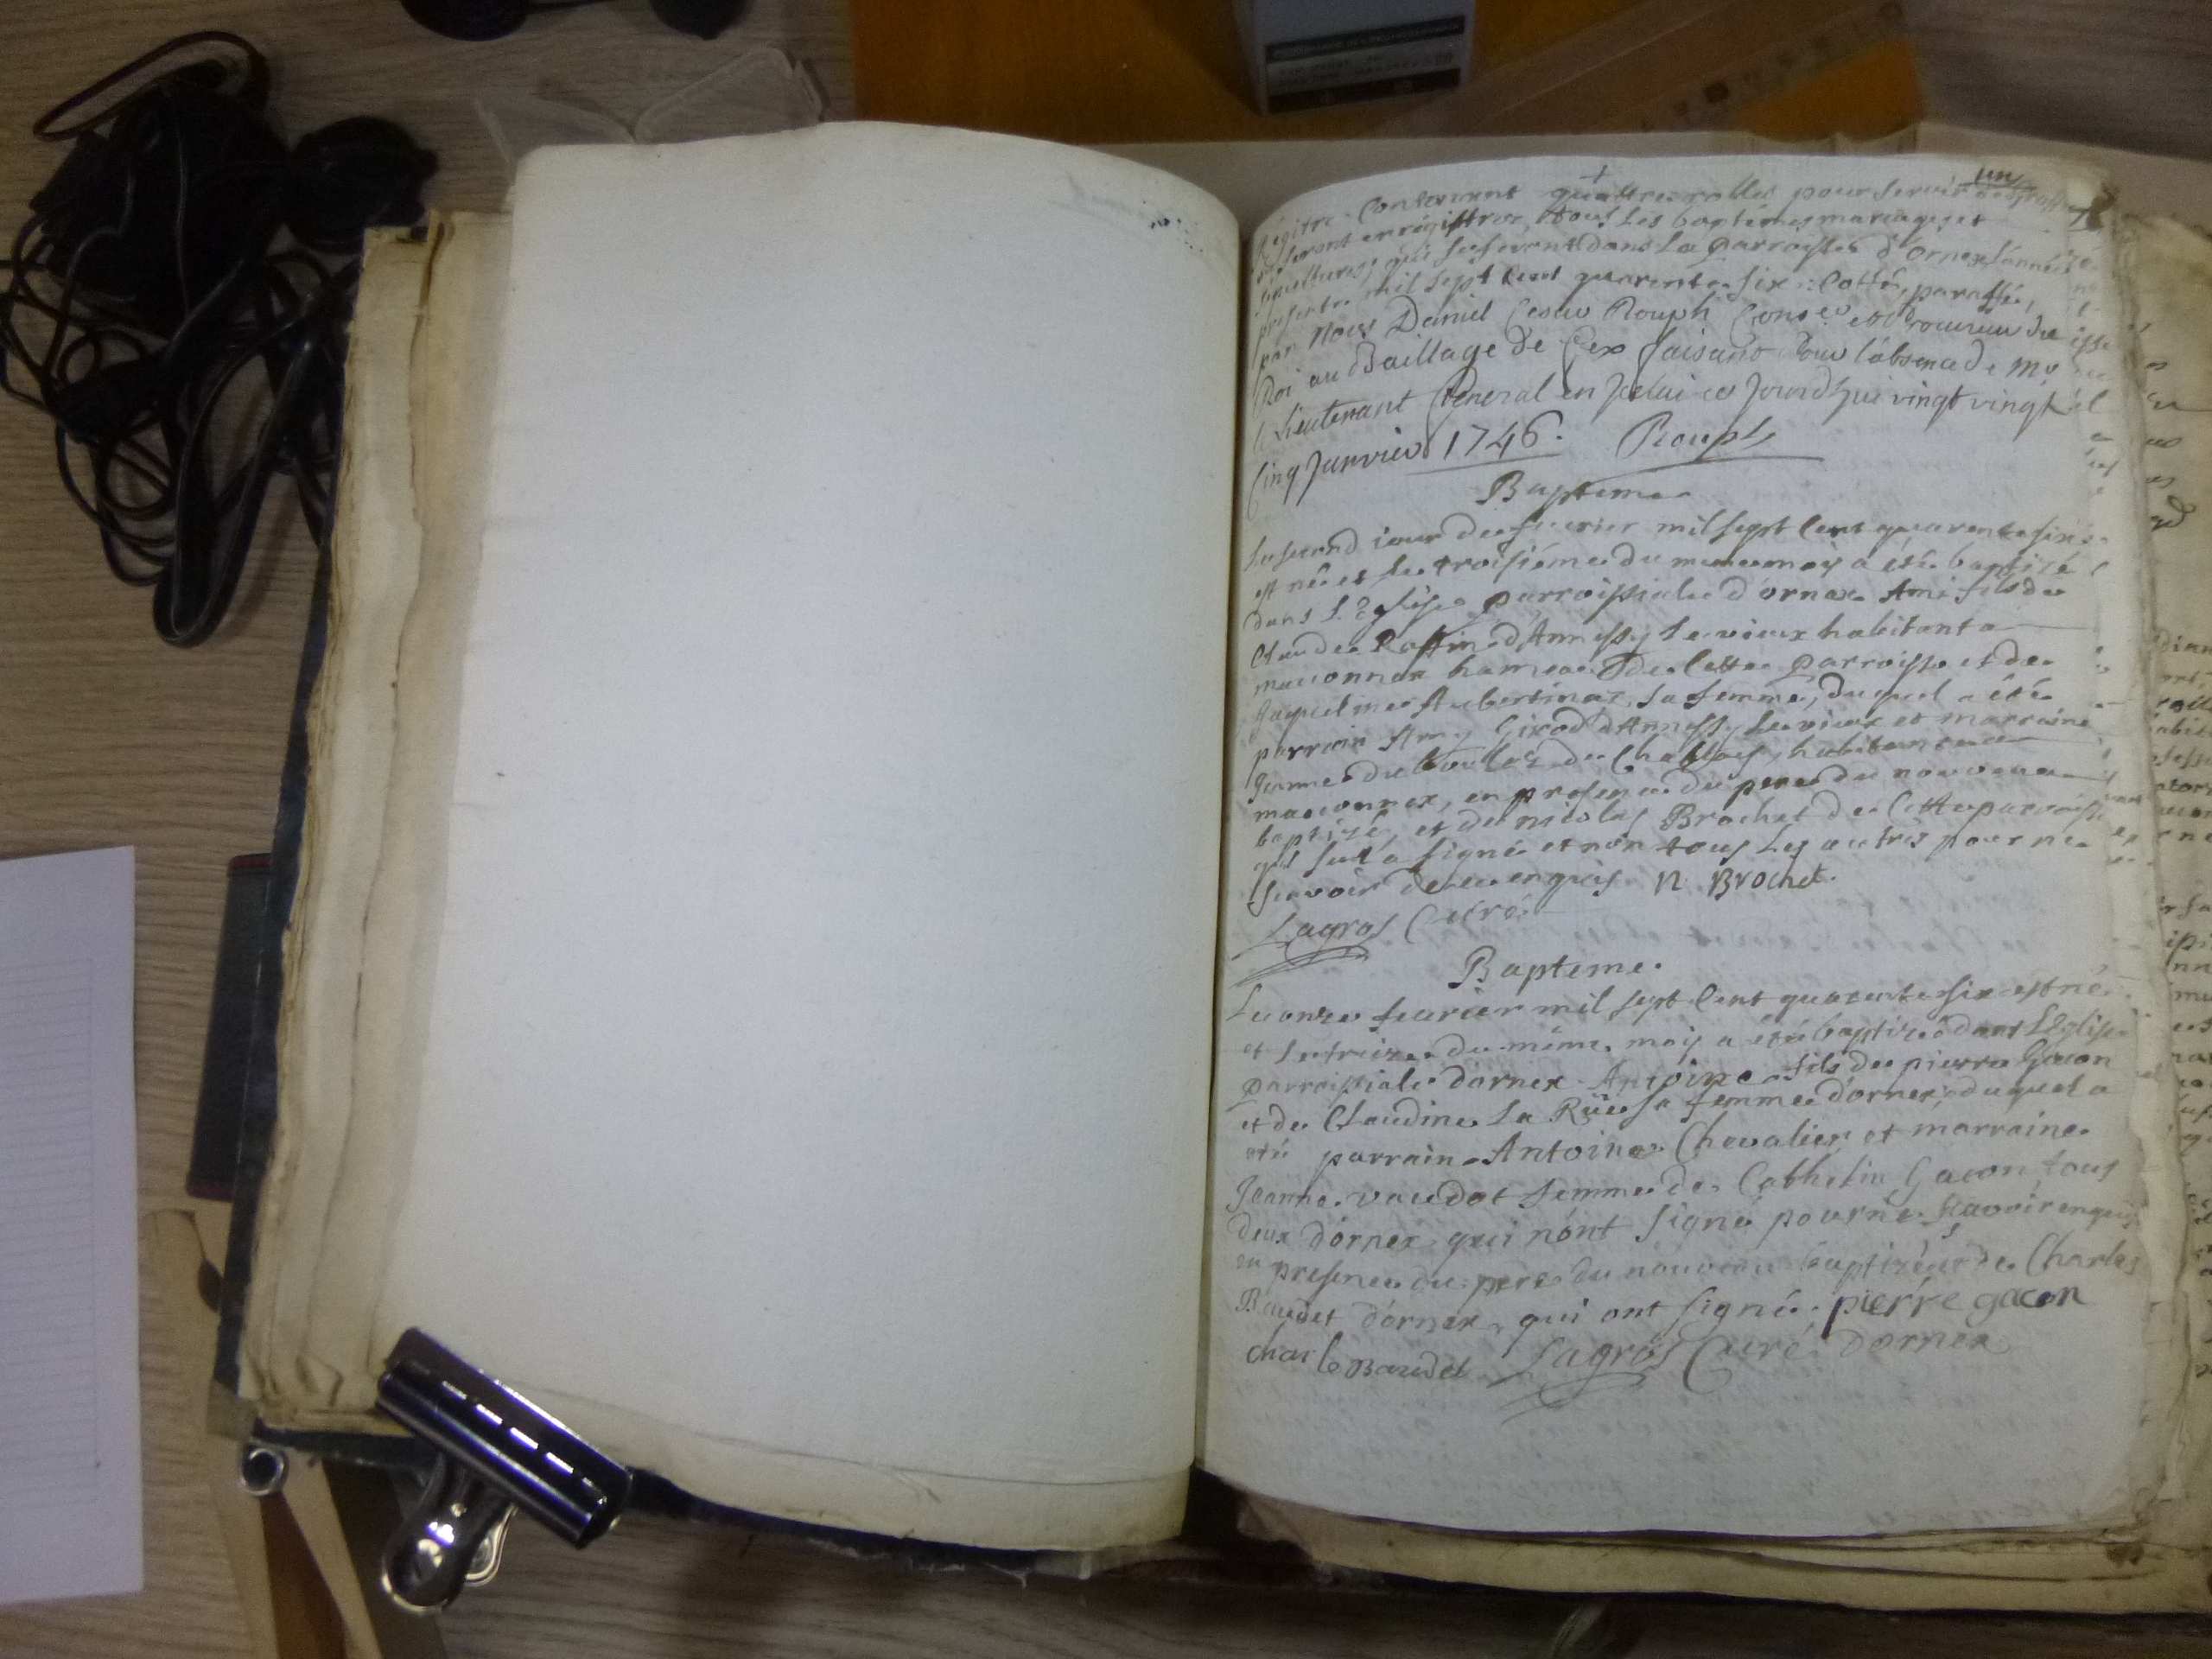 un
Régitre Contenant quattre rolles pour servir
seront enrégistres, tous les baptêmes mariages et
sépultures qui se feront dans la parroisse d'ornex l'année
presente mil sept cent quarente six: Cotté, paraffé,
par Nous Daniel Cesar Rouph Conser et Procureur du
Roi au Bailliage de Gex faisant pour l'absence de Mr
le Lieutenant General en Jcelui ce jourd'hui vingt vingt
Cinq Janvier 1746. Rouph
Bapteme
Le second iour de feurier mil sept Cent quarente six
est né et le troisiéme du meme mois a été baptizé
dans L'Eglise parroissiale d'ornex Ami fils de
Claude d'Annessy le vieux habitant a
maconnex hameau de Cette parroisse et de
Jaqueline Aubertinaz sa femme, duquel a été
parrain Amy Girod d'Annessy le vieux et marraine
Jeanne du du Chablais, habitante a
maconnex, en presence du pere du nouveau
baptizé, et de nicolas Brochet de Cette parroisse
qui seul a signé et non tous les autres pour ne
scavoir de ce enquis. N Brochet.
Lagros Curé
Bapteme.
Le onze feurier mil sept Cent quarente six est né
et le treize du même mois a été baptizé dans L'Eglise
parroissiale d'ornex Antoine fils de pierre Gacon
et de Claudine La Rüe sa femme d'ornex, duquel a
été parrain Antoine Chevalier et marraine
Jeanne vaudot femme de Cathelin Gacon, tous
deux d'ornex qui n'ont signé pour ne scavoir enquis
en presence du pere du nouveau baptizé et de Charles
Baudet d'ornex, qui ont signé. pierre gacon
charle Baudet Lagros Curé D'ornex